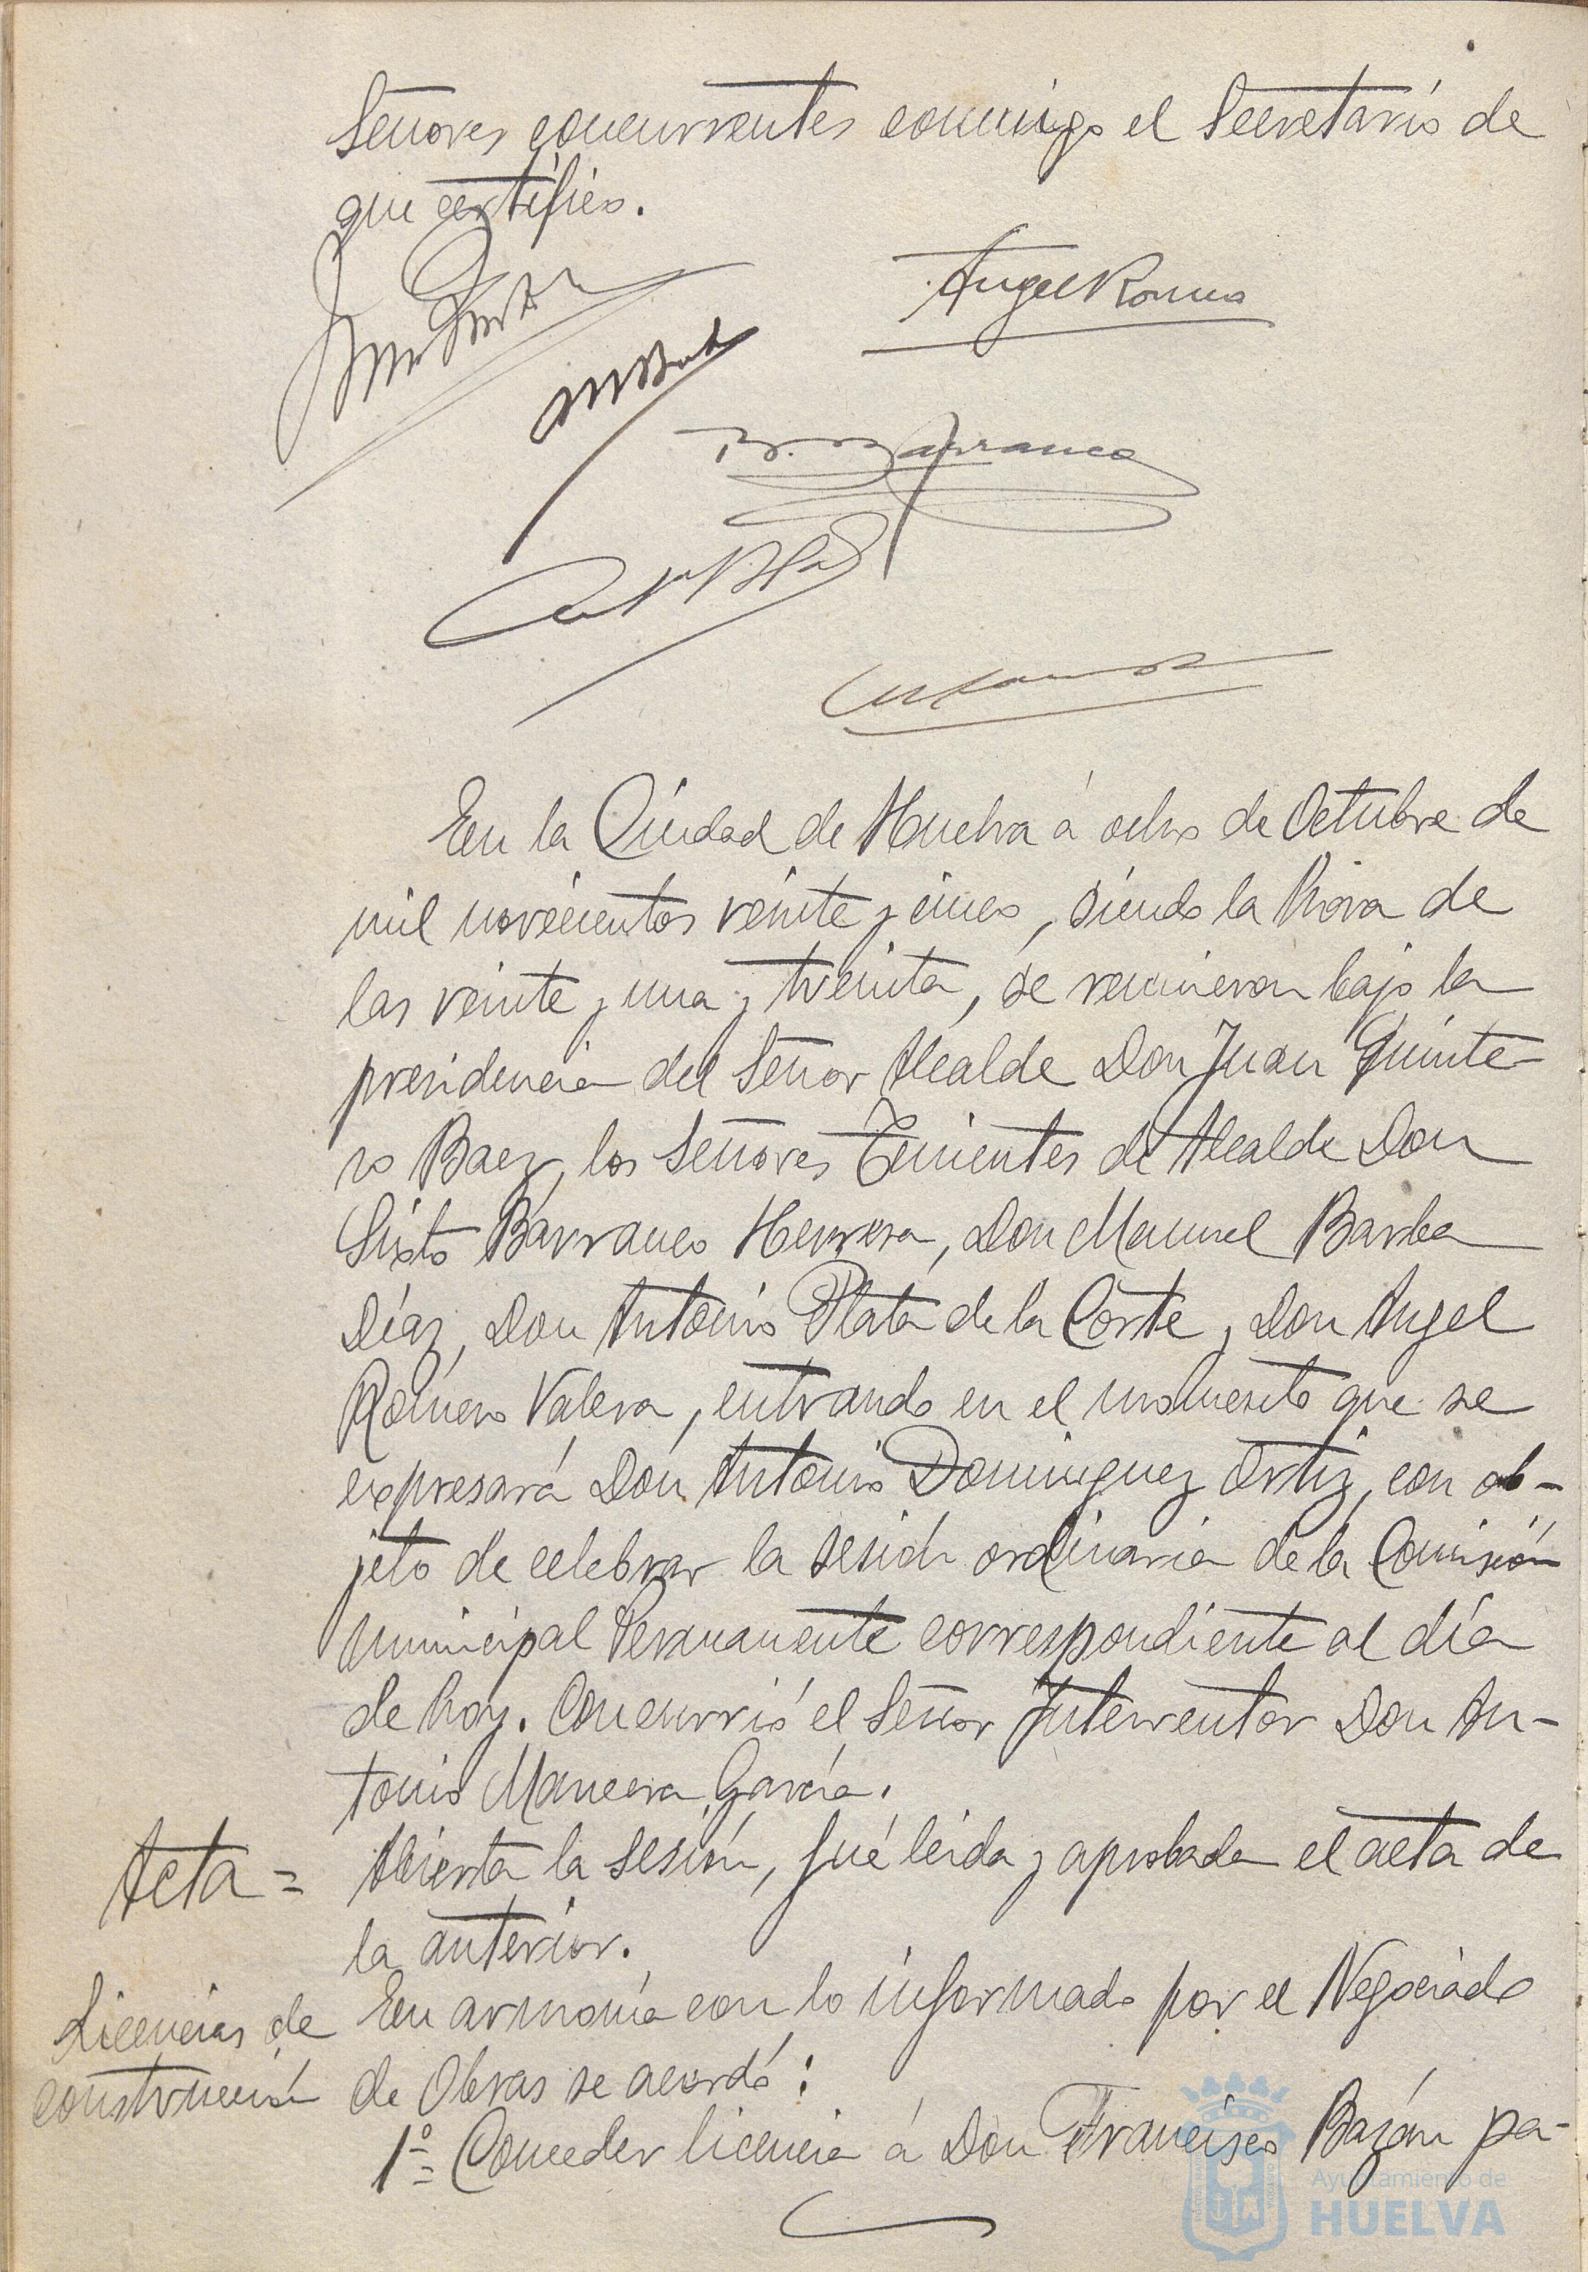 Señores concurrentes conmigo el Secretario de
que certifico.
Angel Romero
S. Barranco
En la Ciudad de Huelva á ocho de Octubre de
mil novecientos veinte y cinco, siendo la hora de
las veinte y una y treinta, se reunieron bajo la
presidencia del Señor Alcalde Don Juan Quinte-
ro Baez, los Señores Tenientes de Alcalde Don
Sixto Barranco Herrera, Don Manuel Barba
Díaz, Don Antonio Plata de la Corte y Don Angel
Romero Valera, entrando en el momento que se
expresará Don Antonio Dominguez Ortiz, con ob-
jeto de celebrar la sesión ordinaria de la Comisión
Municipal Permanente correspondiente al día
de hoy. Concurrió el Señor Interventor Don An-
tonio Mancera García.
Acta =
Abierta la sesión, fué leida y aprobada el acta de
la anterior.
Licencias de
construcción
En armonía con lo informado por el Negociado
de Obras se acordó:
1º Conceder licencia á Don Francisco Bazán pa-
Ayuntamiento de
HUELVA